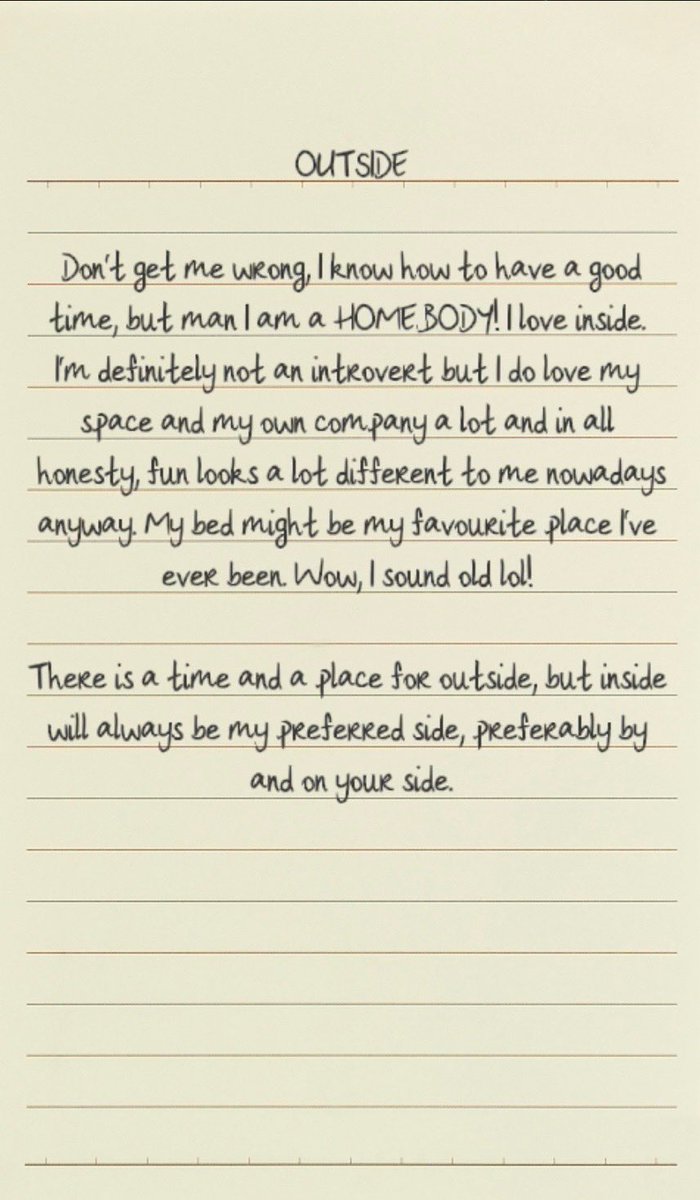 OUTSIDE
Don't get me wrong, I know how to have a good
time, but man I am a HOMEBODY! I love inside.
I'm definitely not an introvert but I do love my
space and my own company a lot and in all
honesty, fun looks a lot different to me nowadays
anyway. My bed might be my favourite place I've
ever been. Wow, I sound old lol!
There is a time and a place for outside, but inside
will always be my preferred side, preferably by
and on your side.